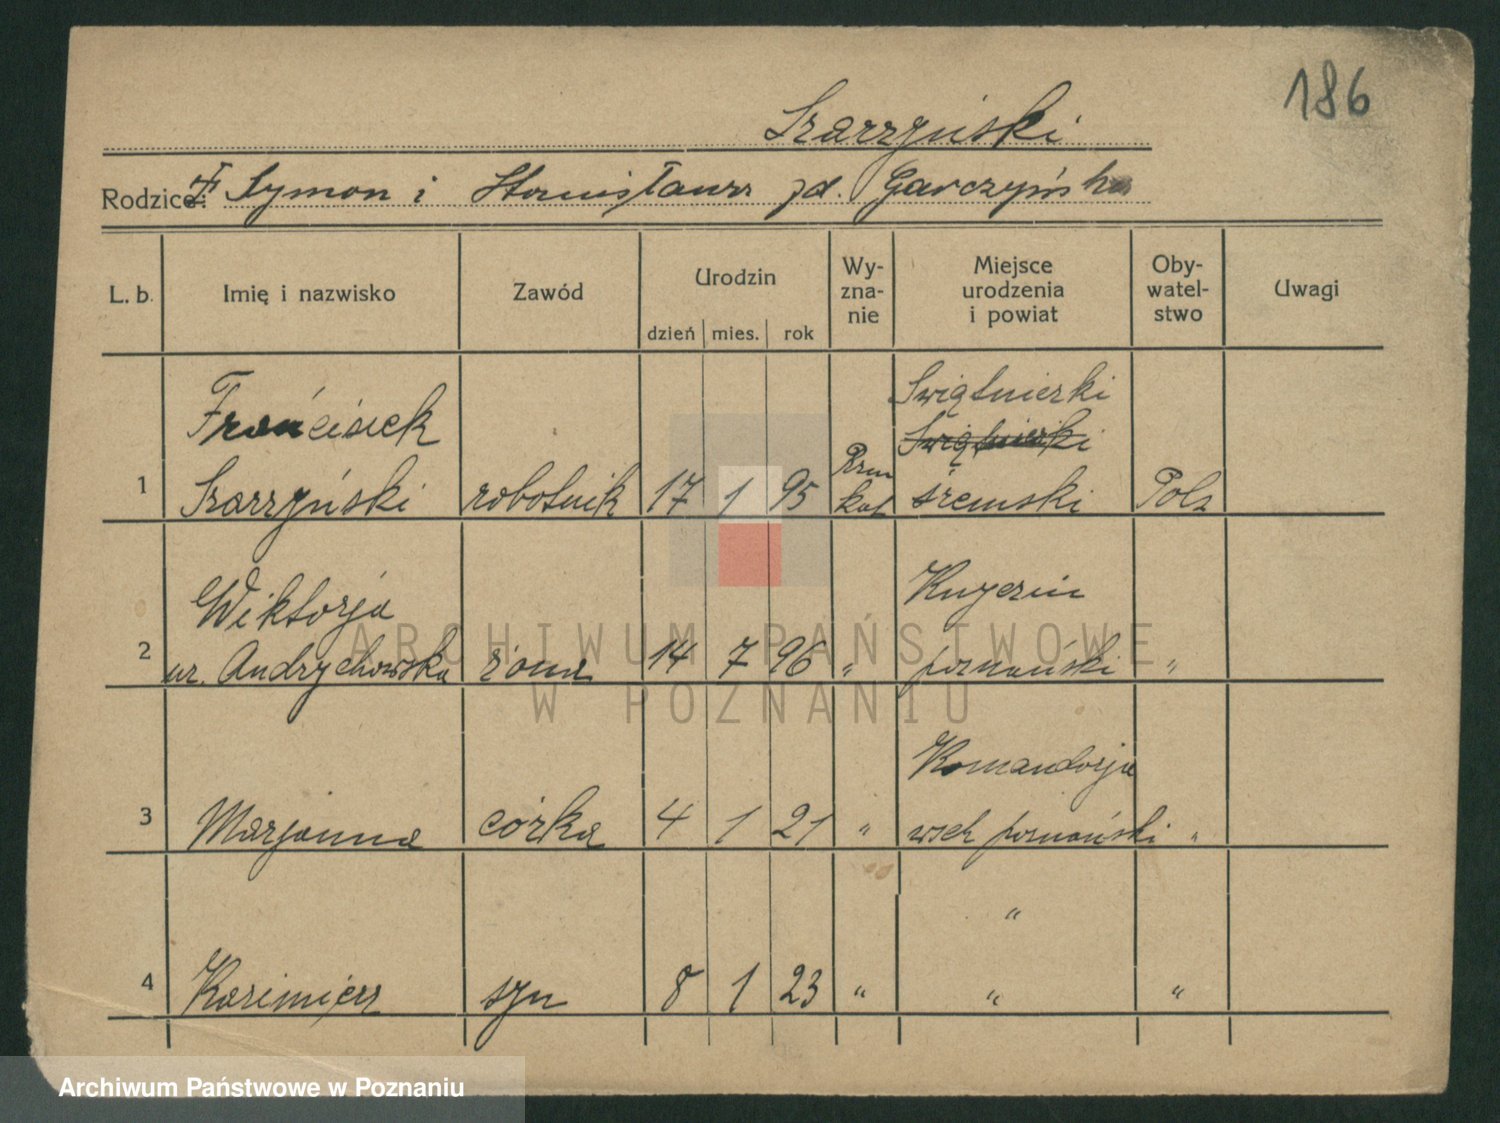 186
Szarzyński
Rodzice: Szymon i Stanisława zd. Garczyńska
L. b. Imię i nazwisko Zawód Urodzin Wy-zna-nie Miejsce urodzenia i powiat Oby-watel-stwo Uwagi
dzień mies. rok
Franciszek Świątniczki
Świątniczki
1 Szarzyński robotnik 17 1 95 Rzm kat śremski Pols
Wiktorja
2 ur. Andrychowska żona 14 7 96 " poznański "
Komandorja
3 Marjanna córka 4 1 21 " wsch poznański "
"
4 Kazimierz syn 8 1 23 " " "
ARCHIWUM PAŃSTWOWE
W POZNANIU
Archiwum Państwowe w Poznaniu